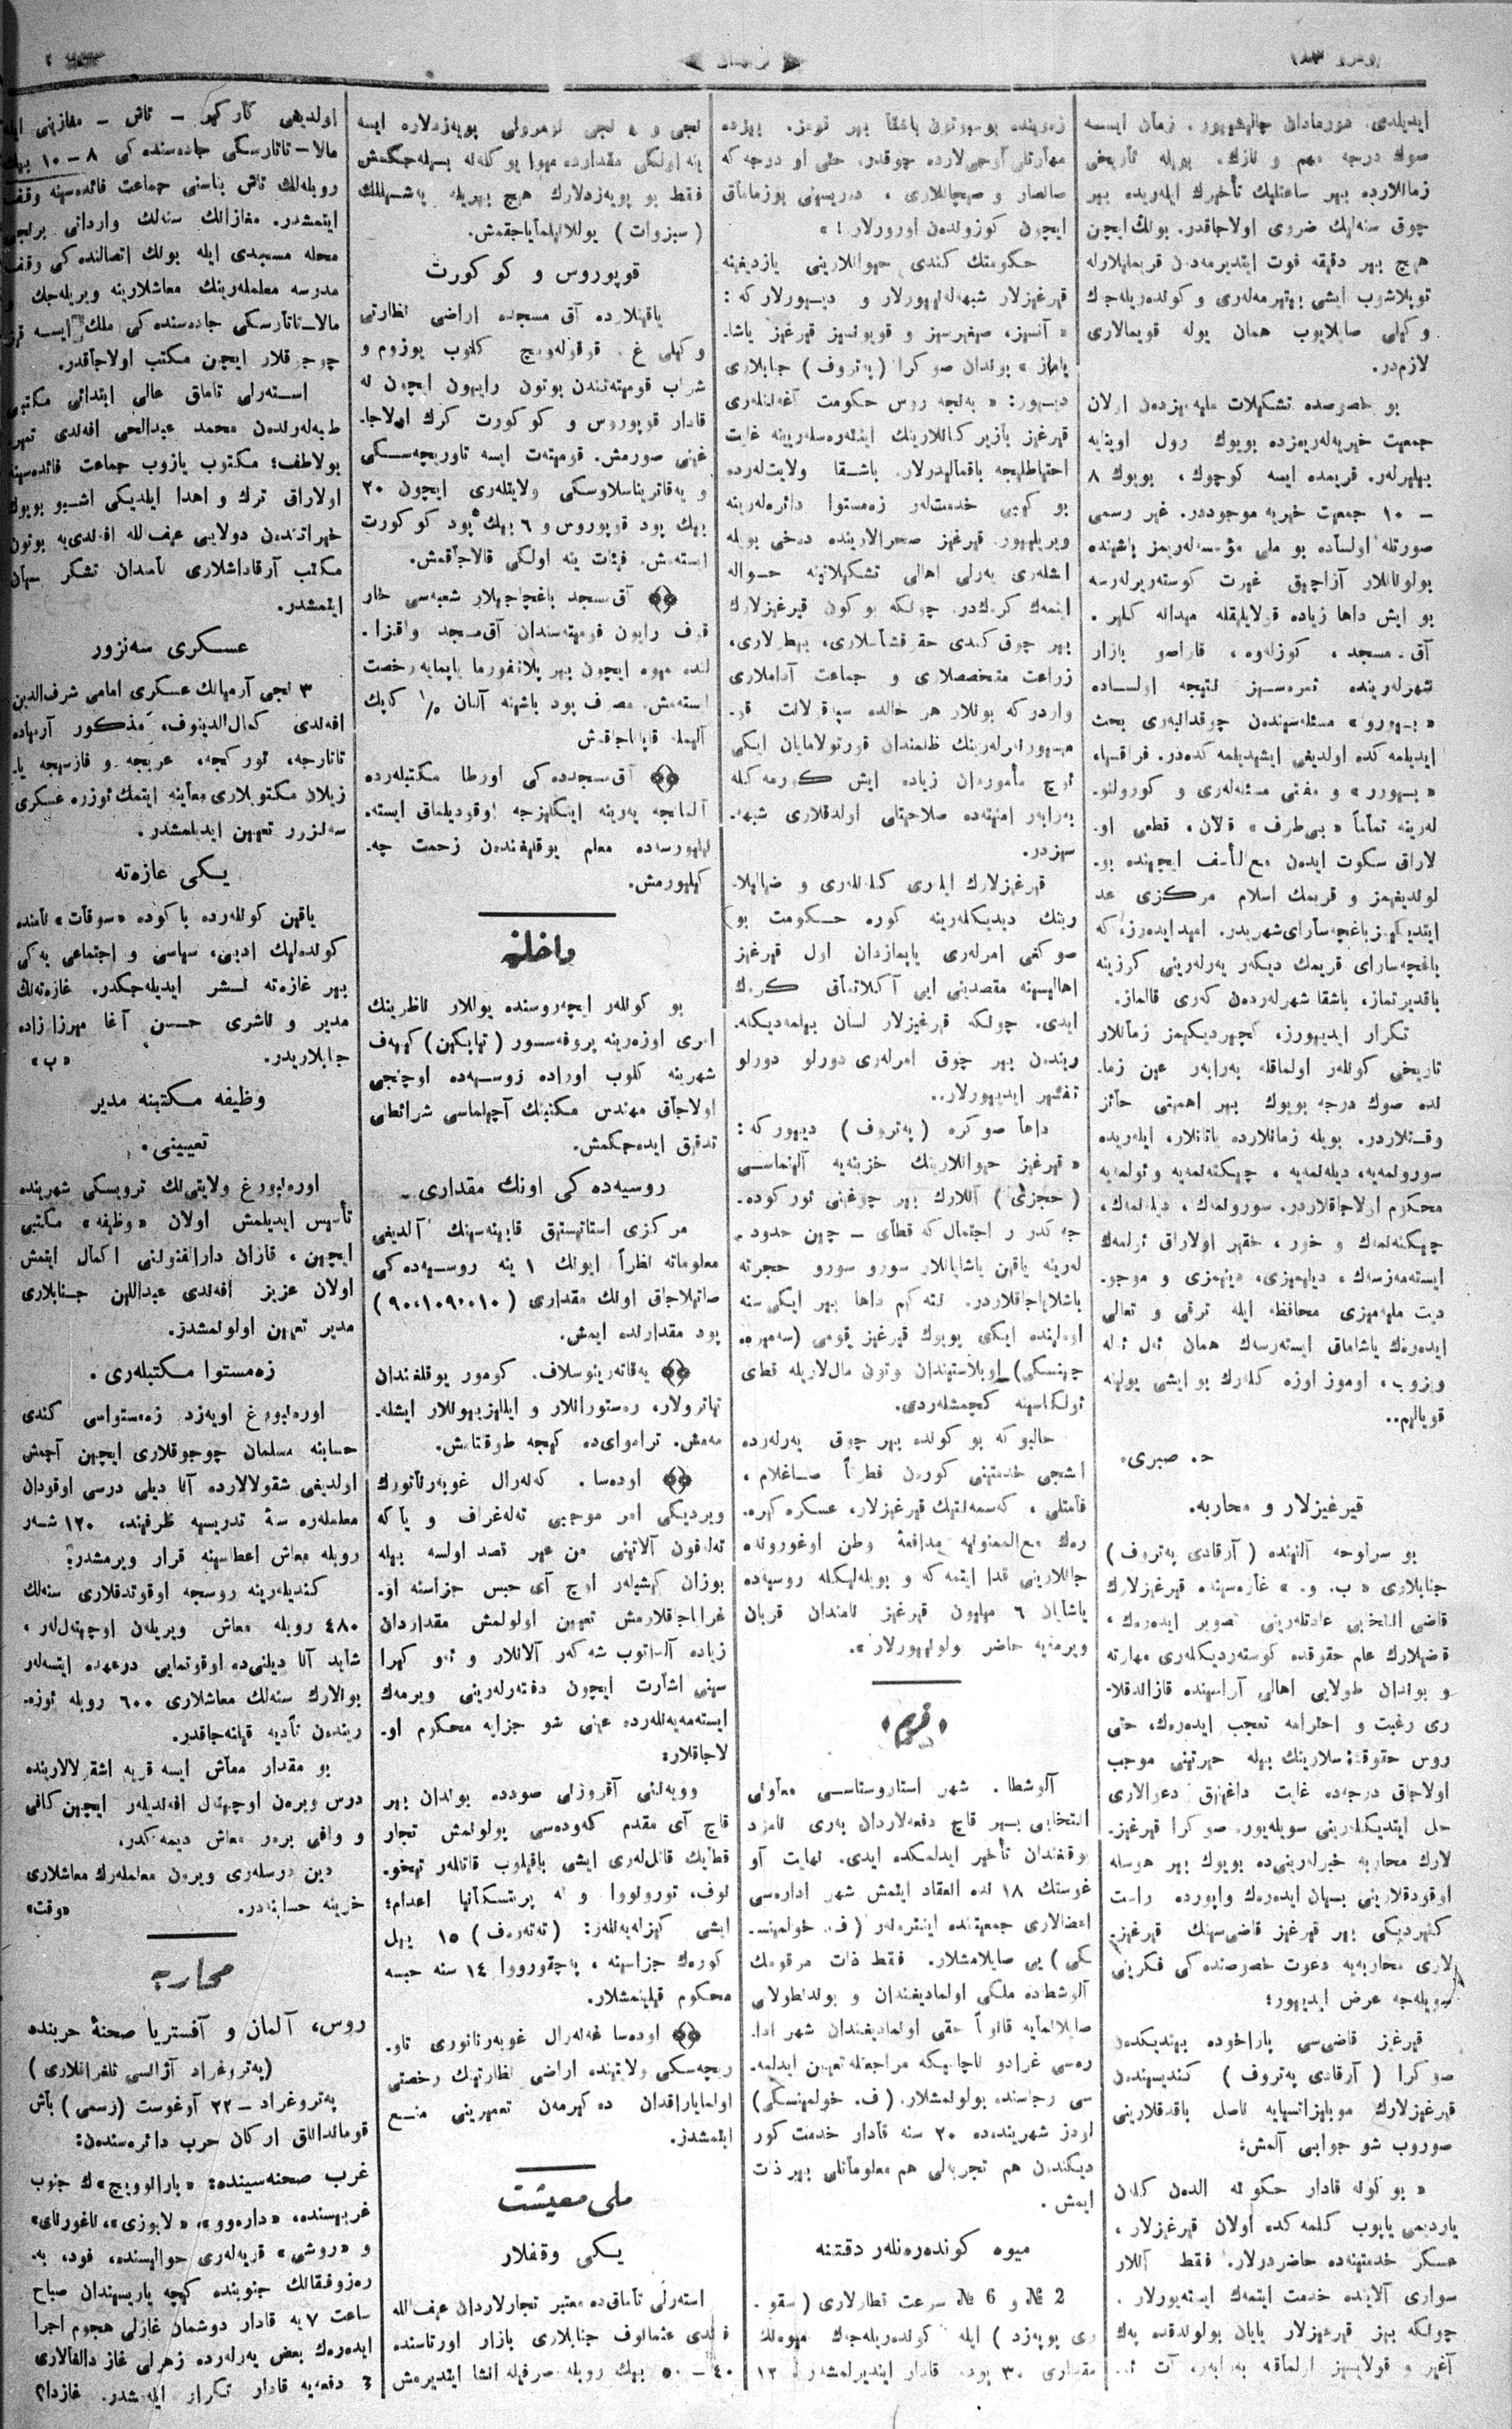 ترجمان
ایدیلدی. هورمادان چالیشیور. زمان ایسه
صوك درجه مهم و نازك. بویله تاریخی
زمانلارده بیر ساعتلیك تأخیرك ایله‌ریده بیر
چوق سنه‌لیك ضرری اولاجاقدر. بونك ایچون
هیچ بیر دقیقه فوت ایتدیرمه‌دن قریملیلارله
توپلاشوب ایشی بیتیرمه‌لری و کونده‌ریله‌جك
و کیلی صایلایوب همان یوله قویمالاری
لازم‌در.
بو خصوصده تشکیلات ملیه‌میزدن اولان
جمعیت خیریه‌له‌ریمزده بویوك رول اوینایه
بیلیرلر. قریمده ایسه کوچوك، بویوك ۸
— ۱۰ جمعیت خیریه موجوددر. غیر رسمی
صورتله اولساده بو ملی مؤسسه‌له‌ریمز باشینده
بولونانلار آزاچیق غیرت کوسته‌ریرلرسه
بو ایش داها زیاده قولایلیقله میدانه کلیر.
آق‌مسجد، کوزله‌وه، قاراصو بازار
شهرله‌رینده ثمره‌سیز نتیجه اولساده
«بیورو» مسئله‌سیندن چوقدانبه‌ری بحث
ایدیلمه‌کده اولدیغی ایشیدیلمه‌کده‌در. فراقسیا،
«بیورو» و مفتی مسئله‌له‌ری و کورولتو.
له‌رینه تماماً «بی‌طرف» قالان، قطعی او.
لاراق سکوت ایدن مع‌التأسف ایچینده بو.
لوندیغیمز و قریمك اسلام مرکزی عد
ایتدیکیمز باغچه‌سارای شهریدر. امید ایده‌رز، که
باغچه‌سارای قریمك دیکه‌ر یه‌رله‌رینی کوزینه
باقدیرتماز، باشقا شهرله‌ردن که‌ری قالماز.
تکرار ایدیورز، کچیردیکیمز زمانلار
تاریخی کونله‌ر اولماقله به‌رابه‌ر عین زما.
نده صوك درجه بویوك بیر اهمیتی حائز
وقتلاردر. بویله زمانلارده یاتانلار، ایله‌ریده
سورولمه‌یه، دیله‌نمه‌یه، چیکنه‌نمه‌یه و ئولمه‌یه
محکوم اولاجاقلاردر. سورولمه‌ك، دیله‌نمه‌ك،
چیکنه‌نمه‌ك و خور، حقیر اولاراق ئولمه‌ك
ایسته‌مه‌زسه‌ك، دیلیمزی، دینیمزی و موجو.
دیت ملیه‌میزی محافظه ایله ترقی و تعالی
ایده‌رك یاشاماق ایسته‌رسه‌ك همان ئه‌ل ئه‌له
ویروب، اوموز اوزه کله‌رك بو ایشی یولینه
قویالیم..
ح. صبری.
قیرغیزلار و محاربه.
بو سرلوحه آلتینده (آرقادی په‌تروف)
جنابلاری «ب. و.» غازه‌سینده قیرغیزلارك
قاضی انتخابی عادتله‌رینی تصویر ایده‌رك،
قاضیلارك علم حقوقده کوسته‌ردیکله‌ری مهارته
و بوندان طولایی اهالی آراسینده قازاندقلا.
ری رغبت و احترامه تعجب ایده‌رك، حتی
روس حقوقشناسلارینك بیله حیرتینی موجب
اولاجاق درجه‌ده غایت داغینق دعوالاری
حل ایتدیکله‌رینی سویله‌یور. صوکرا قیرغیز.
لارك محاربه خبرله‌رینی‌ده بویوك بیر هوسله
اوقودقلارینی بیان ایده‌رك واپورده راست
کتیردیکی بیر قیرغیز قاضی‌سینك قیرغیز.
لاری محاربه‌یه دعوت خصوصنده‌کی فکرینی
سویله‌جه عرض ایدیور:
قیرغیز قاضی‌سی پاراخوده بیندیکدن
صوکرا (آرقادی په‌تروف) کندیسیندن
قیرغیزلارك موبیلیزاتسیایه ناصل باقدقلارینی
صوروب شو جوابی آلمش:
«بو کونه قادار حکومته الدن کلن
یاردیمی یاپوب کلمه‌کده اولان قیرغیزلار،
عسکر خدمتینده حاضردرلار. فقط آنلار
سواری آلاینده خدمت ایتمه‌ك ایسته‌یورلار.
چونکه بیز قیرغیزلار یایان یولولدقده یه‌ك
آغیر و قولایسیز. اولماقه به‌رابه‌ر، آت ئـ..
زه‌رینده بوسبوتون باشقا بیر قومز. بیزده
مهارتلی آوجی‌لارده چوقدر. حتی او درجه که
صالصار و صیچانلاری، ده‌ریسینی بوزماماق
ایچون کوزوندن اورورلار!»
حکومتك کندی حیوانلارینی یازدیغینه
قیرغیزلار شبهه‌له‌نیورلار و دیورلار که:
«آتسیز، صیغیرسیز و قویونسیز قیرغیز یاشا.
یاماز» بوندان صوکرا (په‌تروف) جنابلاری
دیور: «به‌نجه روس حکومت آغه‌نتله‌ری
قیرغیز بازیرکانلارینك اینته‌ره‌سله‌رینه غایت
احتیاطلیجه باقمالیدرلار. باشقا ولایت‌له‌رده
بو کبی خدمت‌له‌ر زه‌مستوا دائره‌له‌رینه
ویریلیور. قیرغیز صحرالارینده دخی بویله
ایشله‌ری یه‌رلی اهالی تشکیلاتینه حواله
ایتمه‌ك کره‌ك‌در. چونکه بو کون قیرغیزلارك
بیر چوق کندی حقوقشناسلاری، بیطرلاری،
زراعت متخصصلاری و جماعت آداملاری
واردر که بونلار هر حالده سپه‌قولانت قو.
میسیونه‌رله‌رینك ظلمندان قورتولامایان ایکی
ئوچ مأموردان زیاده ایش کورمه‌کله
به‌رابه‌ر امنیته‌ده صلاحیتلی اولدقلاری شبهه.
سیزدر.
قیرغیزلارك ایله‌ری کله‌نله‌ری و ضیالیلا.
رینك دیدیکله‌رینه کوره حکومت بو
صوکغی امرله‌ری یاپمازدان اول قیرغیز
اهالیسینه مقصدینی ایی آکلاتماق کره‌ك
ایدی. چونکه قیرغیزلار لسان بیلمه‌دیکله.
ریندن بیر چوق امرله‌ری دورلو دورلو
تفسیر ایدیورلار..
داها صوکره (په‌تروف) دیور که:
«قیرغیز حیوانلارینك خزینه‌یه آلنماسی
(حجزی) آنلارك بیر چوغینی ئورکوده.
جه‌کدر و احتمال که قطای — چین حدود.
له‌رینه یاقین یاشایانلار سورو سورو هجرته
باشلایاجاقلاردر. نته‌کیم داها بیر ایکی سنه
اوه‌لینده ایکی بویوك قیرغیز قومی (سه‌میره.
چینسکی) اوبلاستیندان وتون مال‌لاریله قطای
ئولکاسینه کچمشله‌ردی.
حالبوکه بو کونده بیر چوق یه‌رله‌رده
ایشجی خدمتینی کورن فطرتاً صاغلام،
قامتلی، که‌سمه‌لتیك قیرغیزلار، عسکره کیره.
ره‌ك مع‌الممنونیه مدافعهٔ وطن اوغورونده
جانلارینی فدا ایتمه‌که و بویله‌لیکله روسیه‌ده
یاشایان ۶ میلیون قیرغیز نامندان قربان
ویرمه‌یه حاضر بولونیورلار».
«قریم»
آلوشطا. شهر استاروستاسی معاونی
انتخابی بیر قاچ دفعه‌لاردان به‌ری نامزد
یوقغندان تأخیر ایدلمکده ایدی. نهایت آو
غوستك ۱۸ نده انعقاد ایتمش شهر اداره‌سی
اعضالاری جمعیتنده اینتره‌له‌ر (ف. خولمینسـ.
کی) یی صایلامشلار. فقط ذات مرقومك
آلوشطاده ملکی اولمادیغندان و بوندنطولایی
صایلانمایه قانوناً حقی اولمادیغندان شهر ادا.
ره‌سی غرادو ناچالنیکه مراجعله تعیین ایدلمه.
سی رجاسنده بولونمشلار. (ف. خولمینسکی)
اودز شهرینده‌ده ۲۰ سنه قادار خدمت کور
دیکندن هم تجربه‌لی هم معلوماتلی بیر ذات
ایمش.
میوه کونده‌ره‌نله‌ر دقتنه
2 № و 6 № سرعت قطارلاری (سقو.
ری پویه‌زد) ایله کونده‌ریله‌جك میوه‌نك
مقداری ۳۰ پوده قادار ایندیرلمشدر. ۱۲
نجی و ۸ نجی نومرولی پویه‌زدلارده ایسه
ینه اولیکی مقدارده میوا یوکله‌نه بیله‌جکمش
فقط بو پویه‌زدلارك هیچ بیریله یه‌شیللك
(سبزوات) یوللانیلمایاجقمش.
قوپوروس و کوکورت
یاقینلارده آق مسجده اراضی نظارتی
وکیلی غ. قوقوله‌ویچ کلوب یوزوم و
شراب قومیته‌تندن بوتون رایون ایچون نه
قادار قوپوروس و کوکورت کرك اولاجا.
غینی صورمش. قومیته‌ت ایسه تاوریچه‌سکی
و یه‌قاترینناسلاوسکی ولایتله‌ری ایچون ۲۰
بیك پود قوپوروس و ۶ بیك پود کوکورت
ایسته‌مش. فیئات ینه اولکی قالاجاقمش.
آق‌مسجد باغچاجیلار شعبه‌سی خار
قوف رایون قومیته‌سندان آق‌مسجد واقزا.
لنده میوه ایچون بیر پلاتفورما یاپمایه رخصت
ایسته‌مش. مصرف پود باشینه آلنان ۱/۰ کاپك
آلیمله قاپلاجاقمش
آق‌مسجدده‌کی اورطا مکتبلرده
آلمانجه یه‌رینه اینکلیزجه اوقودیلماق ایسته.
نیلیورسه‌ده معلم یوقلیغندن زحمت چه.
کیلیورمش.
داخلیه
بو کونله‌ر ایچه‌روسنده یوللار ناظرینك
امری اوزه‌رینه پروفه‌سسور (تیاپکین) کییه‌ف
شهرینه کلوب اوراده روسیه‌ده اوچنجی
اولاجاق مهندس مکتبنك آچیلماسی شرائطنی
تدقیق ایده‌جکمش.
روسیه‌ده‌کی اونك مقداری.
مرکزی استاتیستیق قابینه‌سینك آلدیغی
معلوماته نظراً ایونك ۱ ینه روسیه‌ده‌کی
صاتیلاجاق اونك مقداری (۹۰،۱۰۹،۰۱۰)
پود مقدارنده ایمش.
یه‌قاته‌رینوسلاف. کومور یوقلغندان
تیاترولار، ره‌ستورانلار و ایللیوزیونلار ایشله.
مه‌مش. تراموای‌ده کیجه طوقتامش.
اوده‌سا. که‌نه‌رال غوبه‌رناتورك
ویردیکی امر موجبی ته‌له‌غراف و یاکه
ته‌له‌فون آلاتینی من غیر قصد اولسه بیله
بوزان کیشیله‌ر اوچ آی حبس جزاسنه او.
غراجاقلارمش تعیین اولونمش مقداردان
زیاده آلسانوب شه‌که‌ر آلانلار و ئه‌و کیرا
سینی اشارت ایچون دفته‌رله‌رینی ویرمه‌ك
ایسته‌مه‌یه‌نله‌رده عینی شو جزایه محکوم او.
لاجاقلار:
وویه‌ننی آقروژنی صودده بوندان بیر
قاچ آی مقدم که‌وده‌سی بولونمش تجار
قطایك قاتل‌له‌ری ایشی باقیلوب قاتلله‌ر تیخو.
نوف، تورولووا و نه پریتسکانیا اعدام؛
ایشی کیزله‌یه‌نله‌ر: (ته‌ته‌روف) ۱۵ ییل
کوره‌ك جزاسینه، پاچقورووا ۱۴ سنه حبسه
محکوم قیلینمشلار.
اوده‌سا غه‌نه‌رال غوبه‌رناتوری تاو.
ریچه‌سکی ولایتینده اراضی نظارتینك رخصتی
اولمایاراقدان ده‌کیرمه‌ن تعمیرینی منع
ایتمشدر.
ملی معیشت
یکی وقفلار
استه‌رلی تاماق‌ده معتبر تجارلاردان عیف‌الله
فندی عثمانوف جنابلاری بازار اورتاسنده
۴۰ — ۵۰ بیك روبله صرفیله انشا ایتدیرمش
اولدیغی کارکیر — تاش — مغازینی ایله
مالا—تاتارسکی جاده‌سنده‌کی ۸—۱۰ بیك
روبله‌لك تاش یناسنی جماعت فائده‌سینه وقف
ایتمشدر. مغازانك سنه‌لك وارداتی برنجی
محله مسجدی ایله بونك اتصالنده‌کی وقف
مدرسه معلمله‌رینك معاشلارینه ویریله‌جك و
مالا—تاتارسکی جاده‌سنده‌کی ملك ایسه قیز
چوجوقلار ایچون مکتب اولاجاقدر.
استه‌رلی تاماق عالی ابتدائی مکتبی
طلبه‌له‌رندن محمد عبدالحی افه‌ندی تیمر
بولاطف؛ مکتوب یازوب جماعت فائده‌سینه
اولاراق ترك و اهدا ایلدیکی اشبو بویوك
خیراتندن دولایی عیف‌الله افندی‌یه بوتون
مکتب آرقاداشلاری نامندان تشکر بیان
ایتمشدر.
عسکری سه‌نزور
۳ نجی آرمیانك عسکری امامی شرف‌الدین
افه‌ندی کمال‌الدینوف، مذکور آرمیاده
تاتارجه، تورکجه، عربجه و فارسیجه یا.
زیلان مکتوبلاری معاینه ایتمك ئوزره عسکری
سه‌نزور تعیین ایدیلمشدر.
یکی غازه‌ته
یاقین کونله‌رده باکوده «سوقات» نامنده
کونده‌لیك ادبی، سیاسی و اجتماعی یه‌کی
بیر غازه‌ته نشر ایدیله‌جکدر. غازه‌ته‌نك
مدیر و ناشری حسن آغا میرزا زاده
جنابلاریدر. «ب»
وظیفه مکتبنه مدیر
تعیینی.
اوره‌نبورغ ولایتی‌نك ترویسکی شهرینده
تأسیس ایدیلمش اولان «وظیفه» مکتبی
ایچین، قازان دارالفنونی اکمال ایتمش
اولان عزیز افه‌ندی عبداللین جنابلاری
مدیر تعیین اولونمشدر.
زه‌مستوا مکتبله‌ری.
اوره‌نبورغ اویه‌زد زه‌مستواسی کندی
حسابنه مسلمان چوجوقلاری ایچین آچمش
اولدیغی شقولالارده آنا دیلی درسی اوقودان
معلمله‌ره سنهٔ تدریسیه ظرفیند، ۱۲۰ شه‌ر
روبله معاش اعطاسینه قرار ویرمشدر.
کندیله‌رینه روسجه اوقوتدقلاری سنه‌لك
۴۸۰ روبله معاش ویریلن اوچیته‌ل‌له‌ر،
شاید آنا دیلنی‌ده اوقوتمایی درعهده ایتسه‌له‌ر
بونلارك سنه‌لك معاشلاری ۶۰۰ روبله ئوزه.
ریندن تأدیه قیلنه‌جاقدر.
بو مقدار معاش ایسه قریه اشقولالارینده
درس ویره‌ن اوچیته‌ل افه‌ندیله‌ر ایچین کافی
و وافی بره‌ر معاش دیمه‌کدر.
دین درسله‌ری ویرن معلمله‌رك معاشلاری
خزینه حسابنه‌در. «وقت»
محاربه
روس، آلمان و آفستریا صحنهٔ حربنده
(په‌تروغراد آژانسی تلغرافلاری)
په‌تروغراد — ۲۲ آوغوست (رسمی) باش
قوماندانلق ارکان حرب دائره‌سندن:
غرب صحنه‌سینده: «بارانوویچ»ك جنوب
غربیسنده، «داره‌وو»، «لابوزی»، ناغورنای»
و «روشی» قریه‌له‌ری حوالیسنده، فود، به.
ره‌زوفقانك جنوبنده کیچه یاریسیندان صباح
ساعت ۷ یه قادار دوشمان غازلی هجوم اجرا
ایده‌رك بعض یه‌رله‌رده زهرلی غاز دالغالاری
3 دفعه‌یه قادار تکرار ایله‌مشدر. غازدا؟